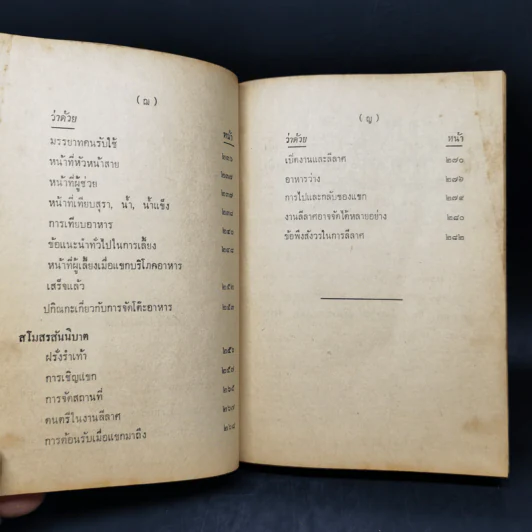 ( ฌ )
ว่าด้วย หน้า
มรรยาทคนรับใช้
หน้าที่หัวหน้าสาย
หน้าที่ผู้ช่วย
หน้าที่เทียบสุรา, น้ำ, น้ำแข็ง
การเทียบอาหาร
ข้อแนะนำทั่วไปในการเลี้ยง
หน้าที่ผู้เลี้ยงเมื่อแขกบริโภคอาหาร
เสร็จแล้ว
ปกิณกะเกี่ยวกับการจัดโต๊ะอาหาร
สโมสรสันนิบาต
ฝรั่งรำเท้า ๒๕๖
การเชิญแขก ๒๕๙
การจัดสถานที่ ๒๖๕
ดนตรีในงานลีลาศ
การต้อนรับเมื่อแขกมาถึง
( ญ )
ว่าด้วย หน้า
เปิดงานและลีลาศ ๒๗๐
อาหารว่าง ๒๗๖
การไปและกลับของแขก ๒๗๙
งานลีลาศอาจจัดได้หลายอย่าง ๒๘๐
ข้อพึงสังวรในการลีลาศ ๒๘๒